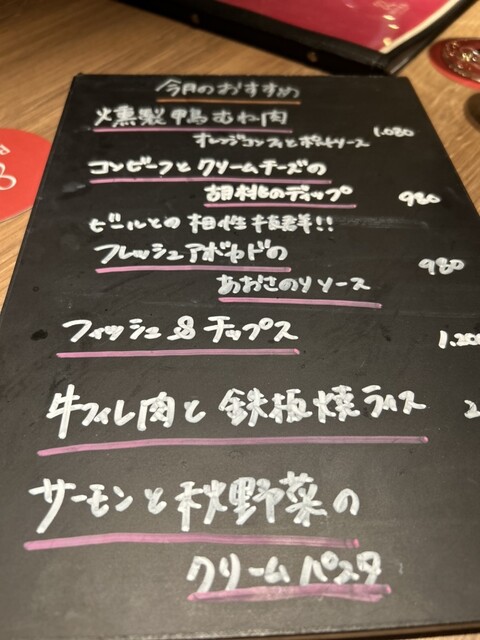 今月のおすすめ
燻製鴨むね肉
オレンジコンフィとポルトソース 1.080
コンビーフとクリームチーズの
胡桃のディップ 980
ビールとの相性抜群!!
フレッシュアボカドの
あおさのりソース 980
フィッシュ&チップス 1.200
牛フィレ肉と鉄板焼ライス 2
サーモンと秋野菜の
クリームパスタ